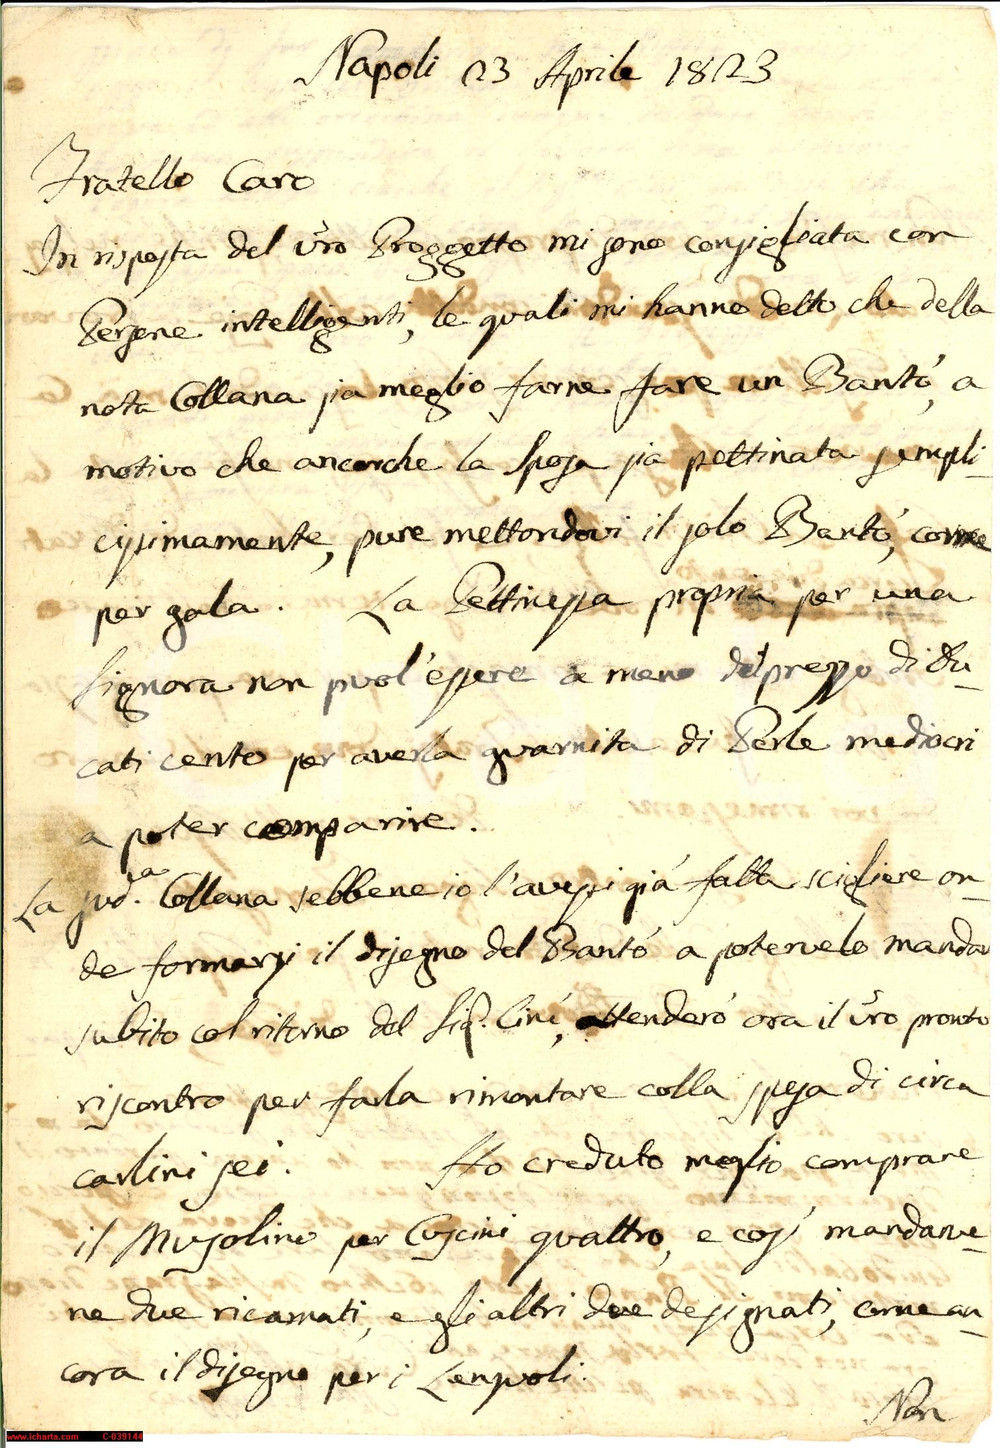 Napoli 23 Aprile 1823
Fratello Caro
In risposta del vro Proggetto mi sono consigliata con
Persone intelligenti, le quali mi hanno detto che della
nota Collana sia meglio farne fare un Bantò, a
motivo che ancorche la Sposa sia pettinata sempli-
cissimamente, pure mettendovi il solo Bantò, corre
per gala. La Pettinessa propria per una
Signora non puol'essere a meno del prezzo di du-
cati cento per averla guarnita di Perle mediocri
a poter comparire.
La sud.ta Collana sebbene io l'avessi già fatta sciogliere on-
de formarsi il disegno del Bantò a potervelo mandar
subito col ritorno del Sig.r Cini, attenderò ora il vro pronto
riscontro per farla rimontare colla spesa di circa
carlini sei. Ho creduto meglio comprare
il Musolino per Cuscini quattro, e così mandarve-
ne due ricamati, e gli altri due designati, come an-
cora il disegno per i Lenzuoli.
Non
www.icharta.com C-039144